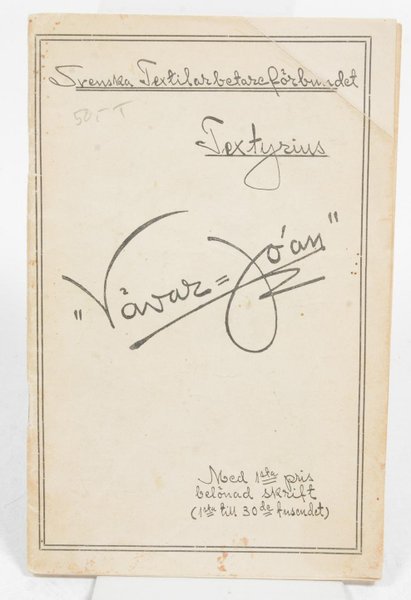 Svenska Textilarbetareförbundet
50:- T
Textyrius
"Vävar=Jo'an"
Med 1sta pris
belönad skrift
(1sta till 30de tusendet)